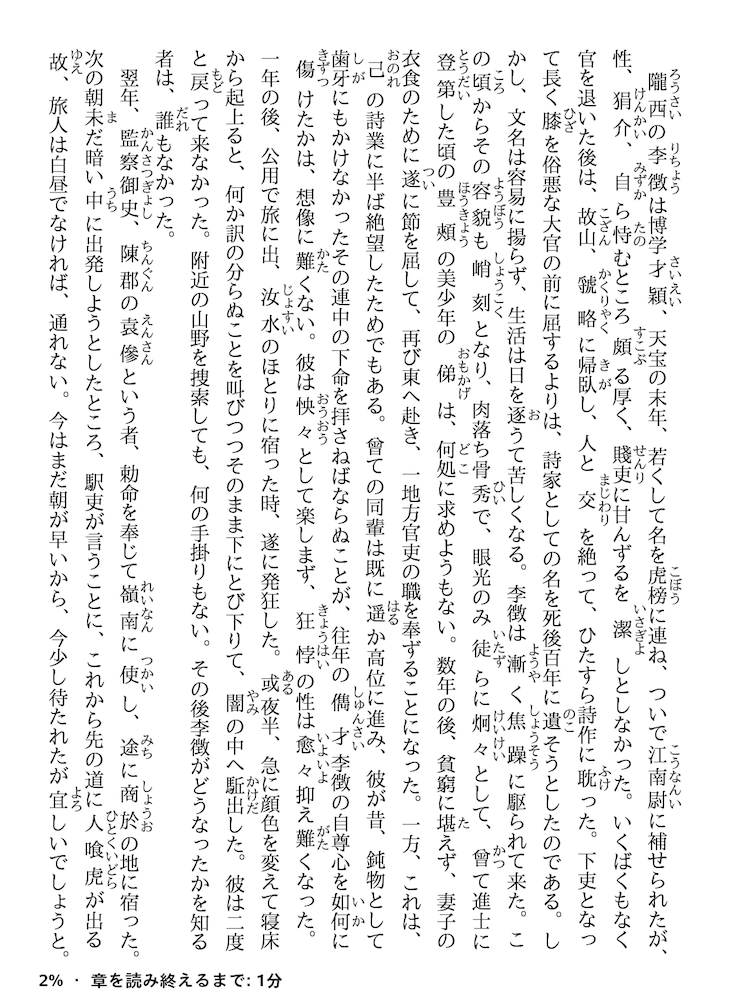 隴西の李徴は博学才穎、天宝の末年、若くして名を虎榜に連ね、ついで江南尉に補せられたが、
性、狷介、自ら恃むところ頗る厚く、賤吏に甘んずるを潔しとしなかった。いくばくもなく
官を退いた後は、故山、虢略に帰臥し、人と交を絶って、ひたすら詩作に耽った。下吏となっ
て長く膝を俗悪な大官の前に屈するよりは、詩家としての名を死後百年に遺そうとしたのである。し
かし、文名は容易に揚らず、生活は日を逐うて苦しくなる。李徴は漸く焦躁に駆られて来た。こ
の頃からその容貌も峭刻となり、肉落ち骨秀で、眼光のみ徒らに炯々として、曾て進士に
登第した頃の豊頰の美少年の俤は、何処に求めようもない。数年の後、貧窮に堪えず、妻子の
衣食のために遂に節を屈して、再び東へ赴き、一地方官吏の職を奉ずることになった。一方、これは、
己の詩業に半ば絶望したためでもある。曾ての同輩は既に遥か高位に進み、彼が昔、鈍物として
歯牙にもかけなかったその連中の下命を拝さねばならぬことが、往年の儁才李徴の自尊心を如何に
傷けたかは、想像に難くない。彼は怏々として楽しまず、狂悖の性は愈々抑え難くなった。
一年の後、公用で旅に出、汝水のほとりに宿った時、遂に発狂した。或夜半、急に顔色を変えて寝床
から起上ると、何か訳の分らぬことを叫びつつそのまま下にとび下りて、闇の中へ駈出した。彼は二度
と戻って来なかった。附近の山野を捜索しても、何の手掛りもない。その後李徴がどうなったかを知る
者は、誰もなかった。
翌年、監察御史、陳郡の袁傪という者、勅命を奉じて嶺南に使し、途に商於の地に宿った。
次の朝未だ暗い中に出発しようとしたところ、駅吏が言うことに、これから先の道に人喰虎が出る
故、旅人は白昼でなければ、通れない。今はまだ朝が早いから、今少し待たれたが宜しいでしょうと。
2% · 章を読み終えるまで: 1分